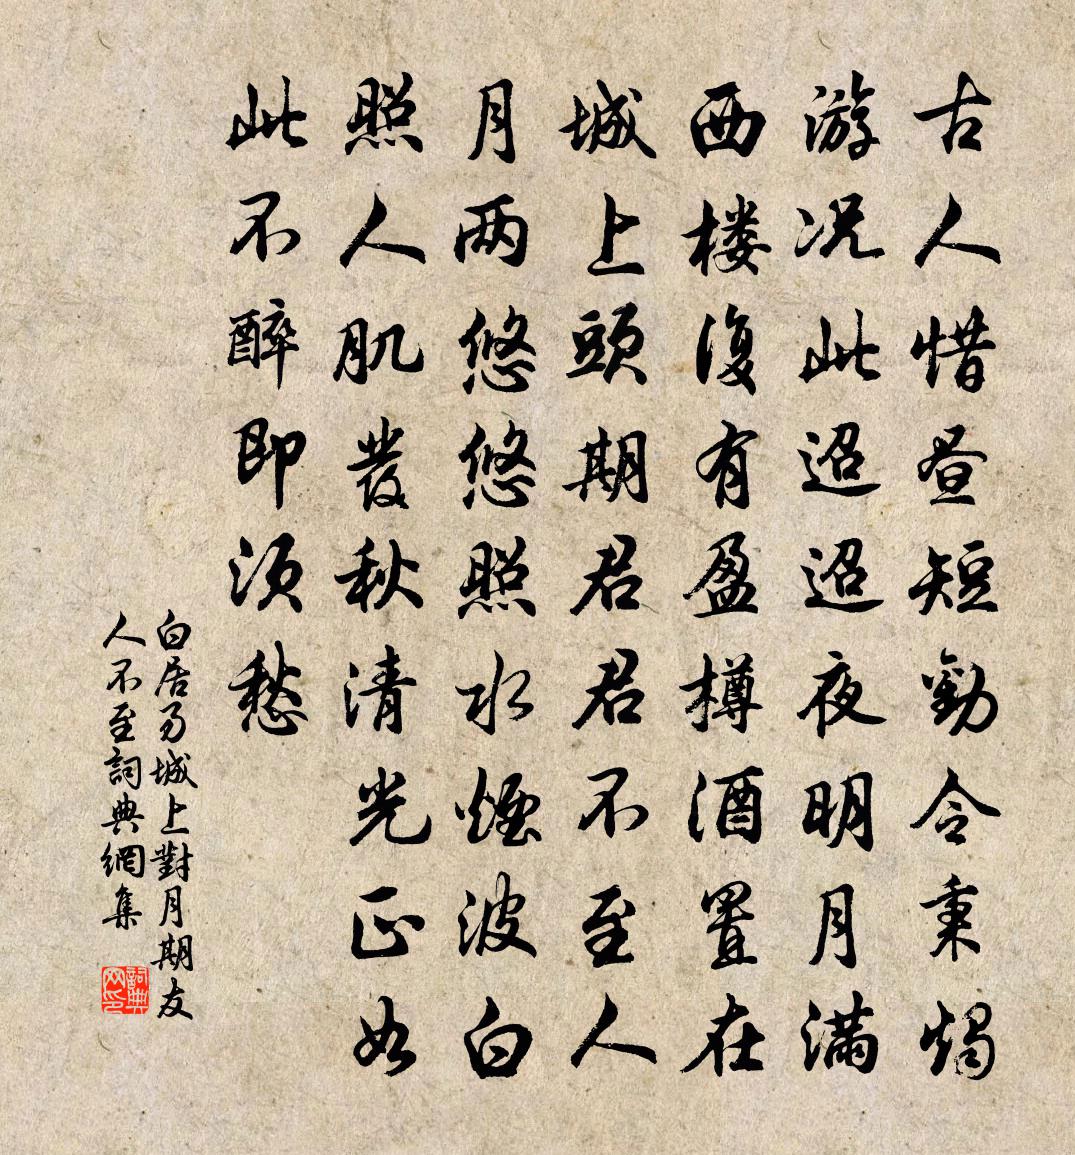 古人惜昼短勸令秉燭
游况此迢迢夜明月滿
西楼復有盈樽酒置在
城上頭期君君不至人
月两悠悠照水煙波白
照人肌發秋清光正如
此不醉即須愁
白居易城上對月期友
人不至詞典網集
詞典
网印